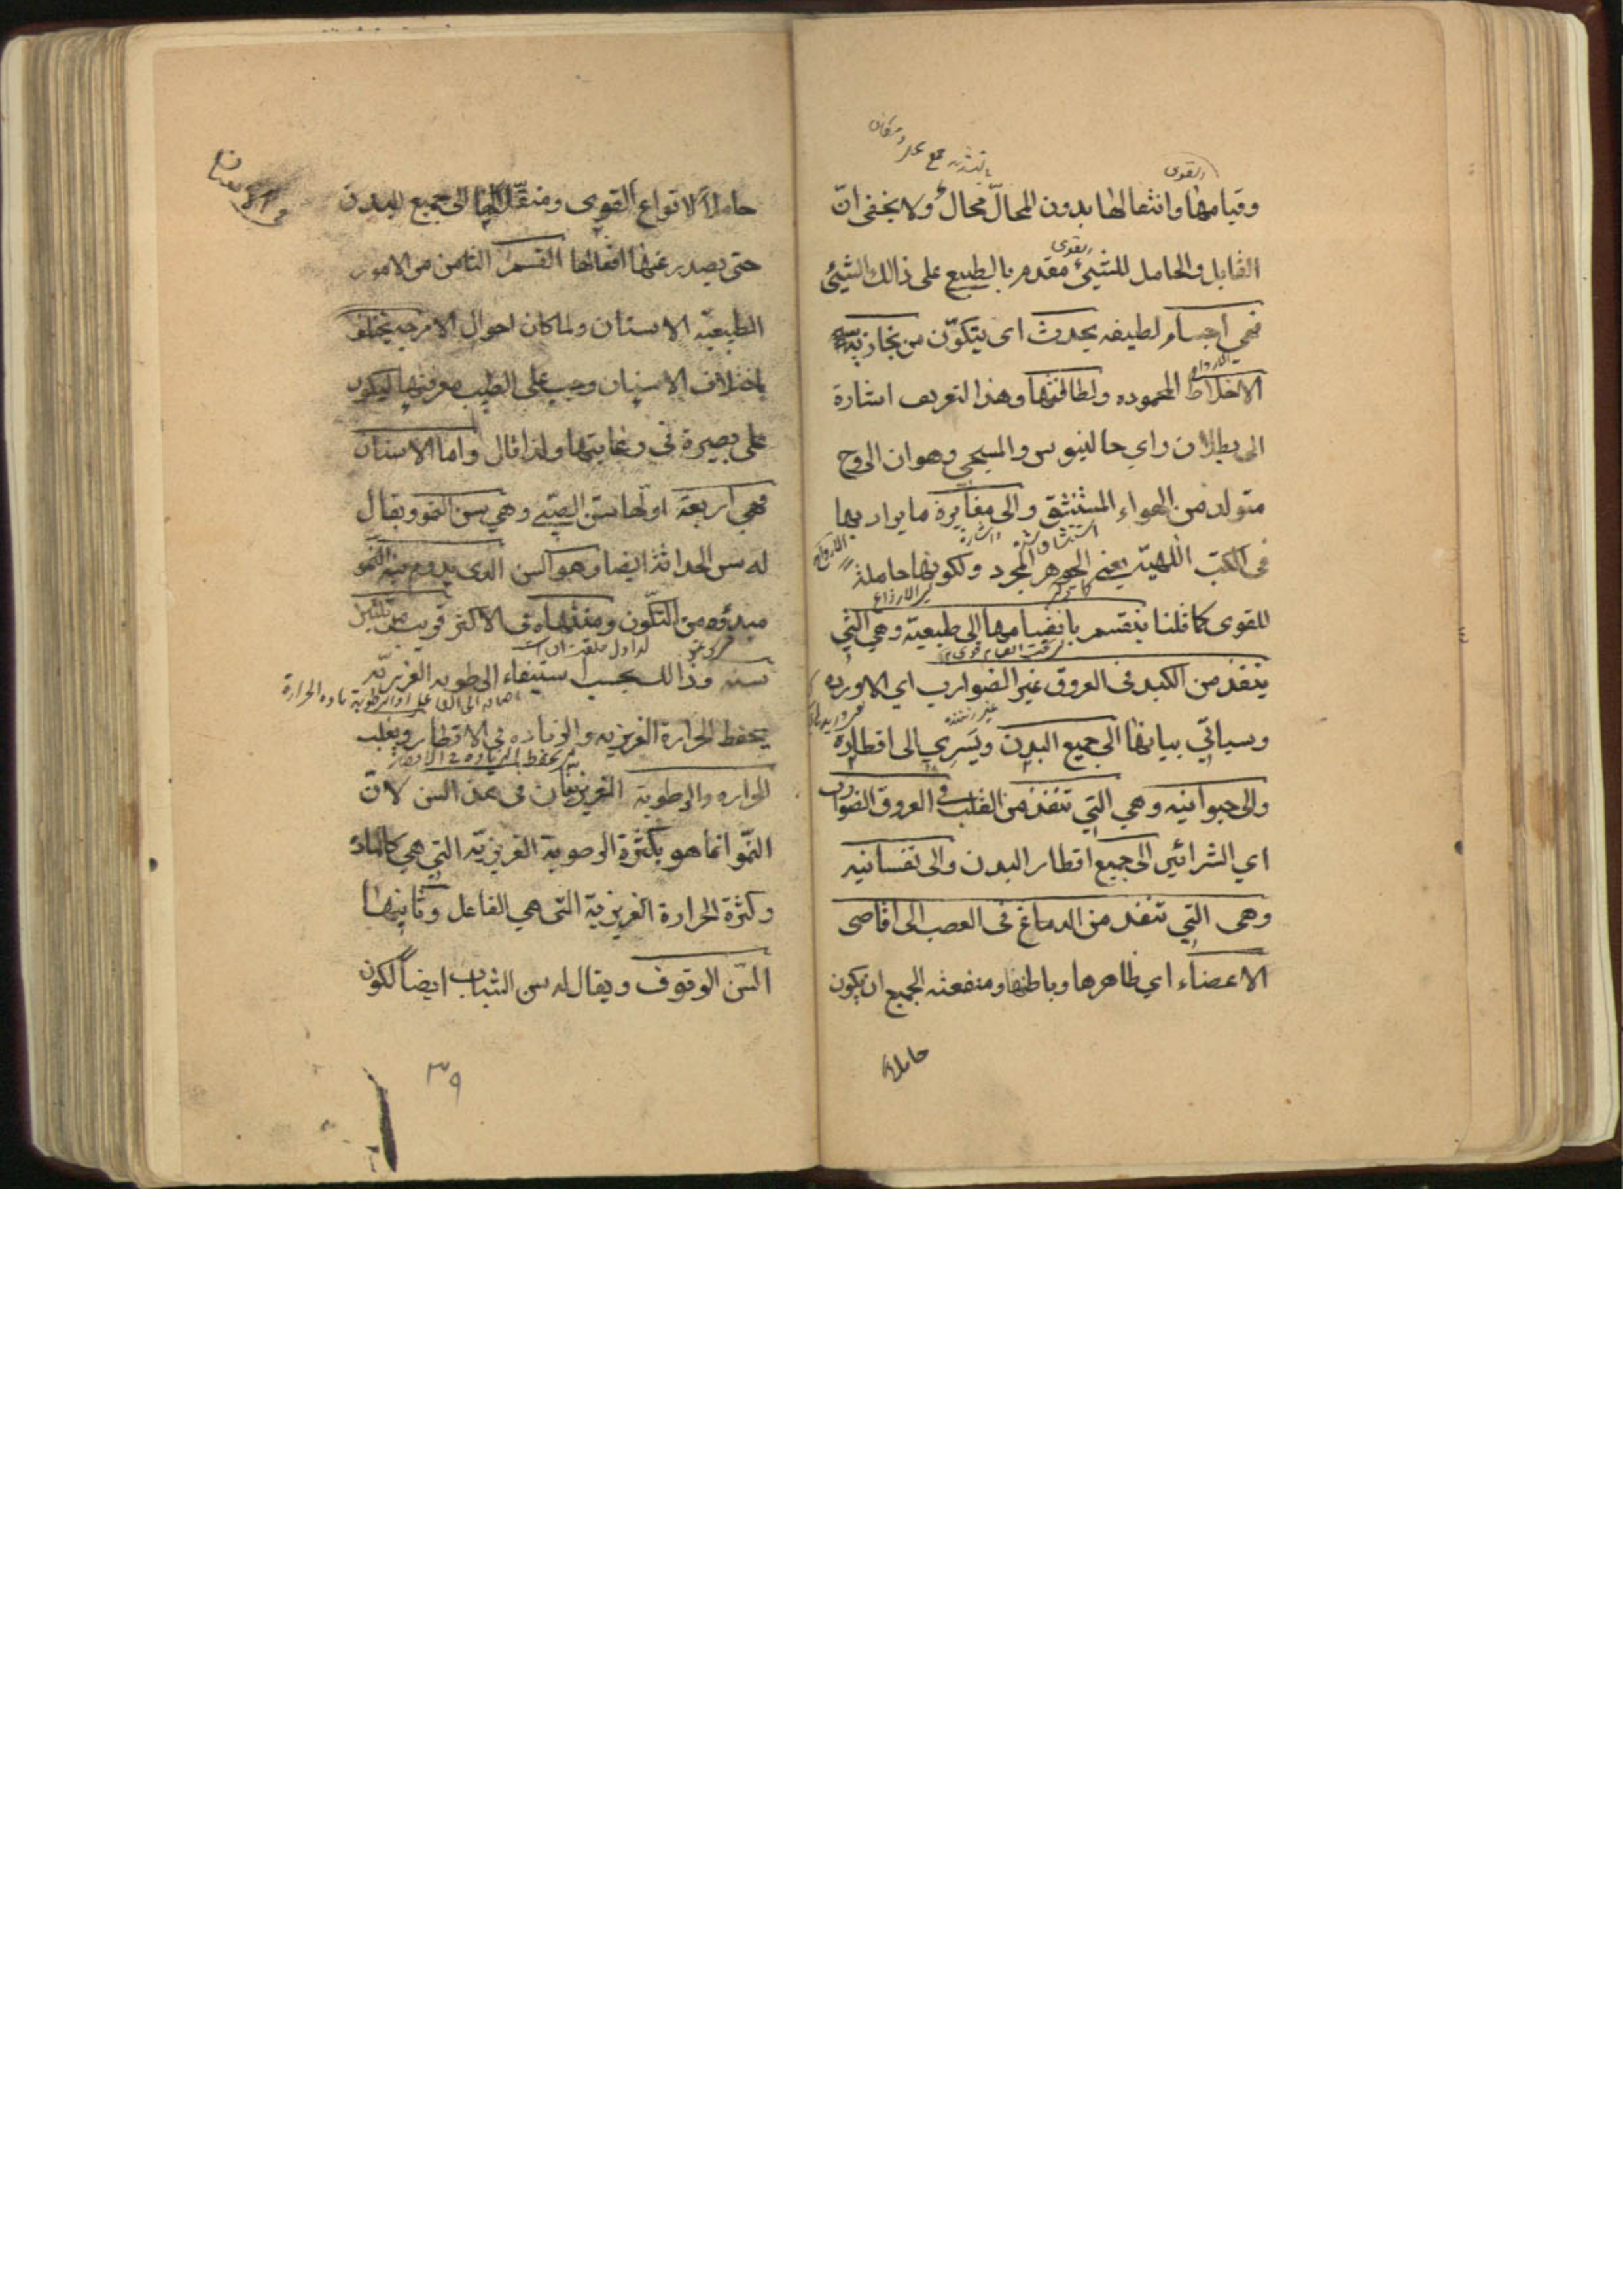 القوى
وقيامها وانتقالها بدون المحالّ محال ولا يخفى انّ
القوى
القابل والحامل للشيئ مقدم بالطبع على ذالك الشيئ
فهي اجسام لطيفه يحدث اى يتكوّن من بخارية
الارواح
الاخلاط المحموده ولطافتها وهذا التعريف اشارة
الى بطلان راي جالينوس والمسيحي وهو ان الروح
متولد من الهواء المستنشق والى مغايرة ما يراد بها
فى الكتب اللهيّة يعني الجوهر المجرد ولكونها حاملة
للقوى كما قلنا ينقسم بانقسامها الى طبيعيّة وهي التي
ينفذ من الكبد فى العروق غير الضوارب اي الاورده
وسياتي بيانها الى جميع البدن ويسري الى اقطاره
والى حيوانيه وهي التي تنفذ من القلب في العروق الضوارب
اي الشرائين الى جميع اقطار البدن والى نفسانيه
وهى التي تنفذ من الدماغ فى العصب الى اقاصى
الاعضاء اي ظاهرها وباطنها ومنفعته الجميع ان يكون
حاملا
في الاسنان
حاملاً لانواع القوى ومنقّلاً لها الى جميع البدن
حتى يصدر عنها افعالها القسم الثامن من الامور
الطبيعيّة الاسنان ولما كان احوال الامزجه يختلف
باختلاف الاسنان وجب على الطبيب معرفتها ليكون
على بصيرة في رعايتها ولذا قال واما الاسنان
فهي اربعة اولها سنّ الصبي وهي سن النمو ويقال
له سن الحداثة ايضا وهو السن الذى يدوم فيه النمو
مبدؤه من التكّون ومنتهاه فى الاكثر قريب من ثلثين
سنه وذالك بحسب استيفاء الرطوبه الغريزيّه
يحفظ الحرارة الغريزيه والزياده في الاقطار ويغلب
الحراره والرطوبة الغريزيتان فى هذا السن لانّ
النمّو انما هو بكثرة الرطوبة الغريزيّة التي هي كالمادة
وكثرة الحرارة الغريزيّة التى هي الفاعل وثانيها
السّن الوقوف ويقال له سن الشباب ايضاً لكون
٣٩